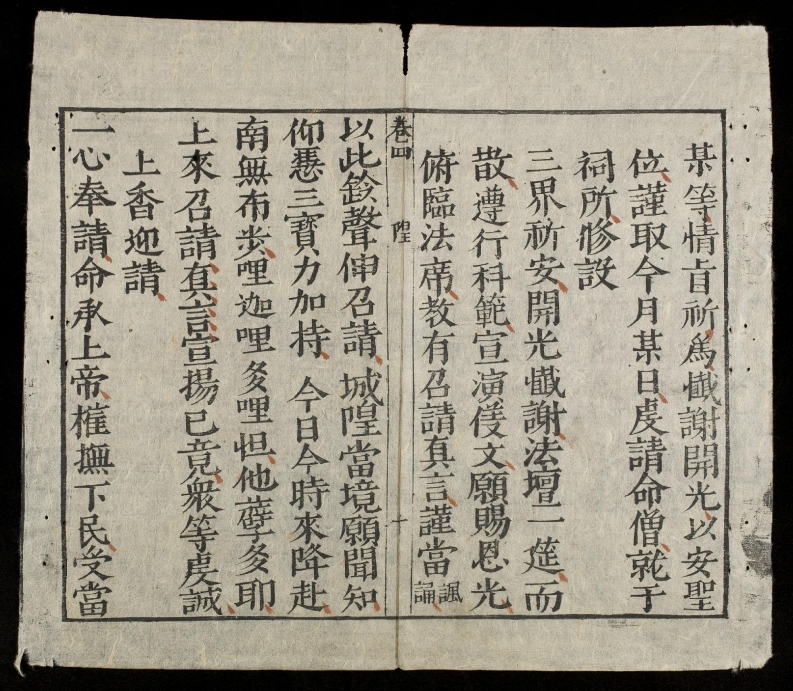 某等情旨祈爲懺謝開光以安聖
位謹取今月某日虔請命僧就于
祠所修設
三界祈安開光懺謝法壇一筵而
散遵行科範宣演偈文願賜恩光
俯臨法席教有召請真言謹當諷誦
卷四 隍 十
以此鈴聲伸召請城隍當境願聞知
仰憑三寶力加持 今日今時來降赴
南無布步哩迦哩多哩怛他孽多耶
上來召請真言宣揚已竟衆等虔誠
上香迎請
一心奉請命承上帝權撫下民受當